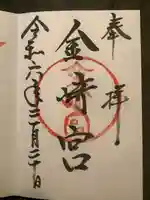 奉拝
金崎宮
令和六年三月二十日